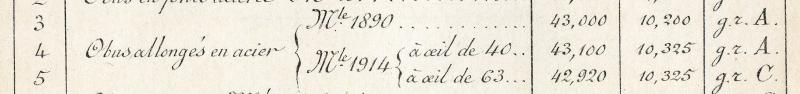 3 Mle 1890 .............. 43,000 10,200 g.r. A.
4 Obus allongés en acier Mle 1914 à œil de 40.. 43,100 10,325 g.r. A.
5 à œil de 63... 42,920 10,325 g.r. C.